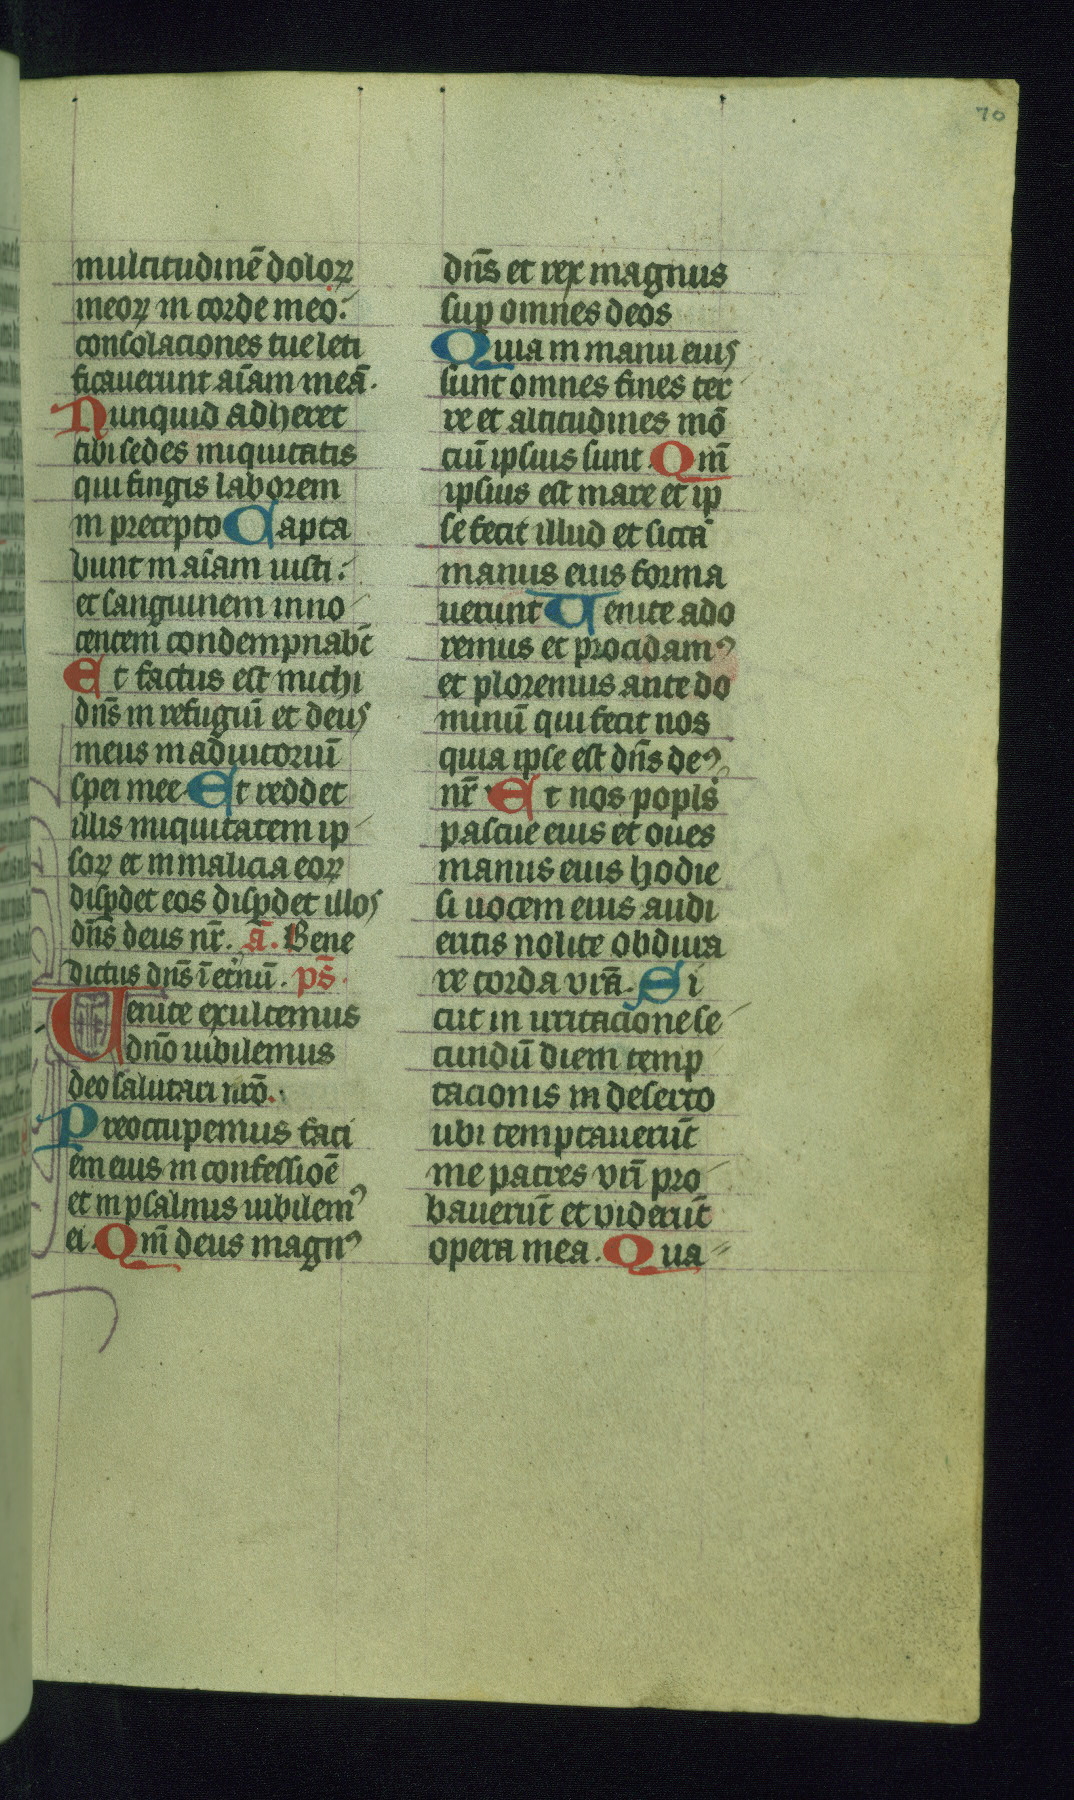 70
multitudinē doloꝝ
meoꝝ in corde meo:
consolaciones tue leti
ficauerunt aīam meā.
Nunquid adheret
tibi sedes iniquitatis
qui fingis laborem
in precepto Capta
bunt in aīam iusti:
et sanguinem inno
centem condempnab̄t
Et factus est michi
dn̄s in refugiū et deus
meus in adiutoriū
spei mee Et reddet
illis iniquitatem ip
soꝝ et in malicia eoꝝ
disꝑdet eos disꝑdet illos
dn̄s deus nr̄. a̅. Bene
dictus dn̄s ī et'nū. ps̄.
Uenite exultemus
dn̄o iubilemus
deo salutari nr̄o.
Preoccupemus faci
em eius in confessioē
et in psalmis iubilemꝰ
ei. Qm̄ deus magnꝰ
dn̄s et rex magnus
suꝑ omnes deos
Quia in manu eius
sunt omnes fines ter
re et altitudines mō
ciū ipsius sunt Qm̄
ipsius est mare et ip
se fecit illud et siccā
manus eius forma
uerunt Uenite ado
remus et procidamꝰ
et ploremus ante do
minū qui fecit nos
quia ipse est dn̄s deꝰ
nr̄ Et nos popl's
pascue eius et oues
manus eius hodie
si uocem eius audi
eritis nolite obdura
re corda vr̄a. Si
cut in irritacione se
cundū diem temp
tacionis in deserto
ubi temptauerūt
me patres vr̄i pro
bauerūt et viderūt
opera mea. Qua